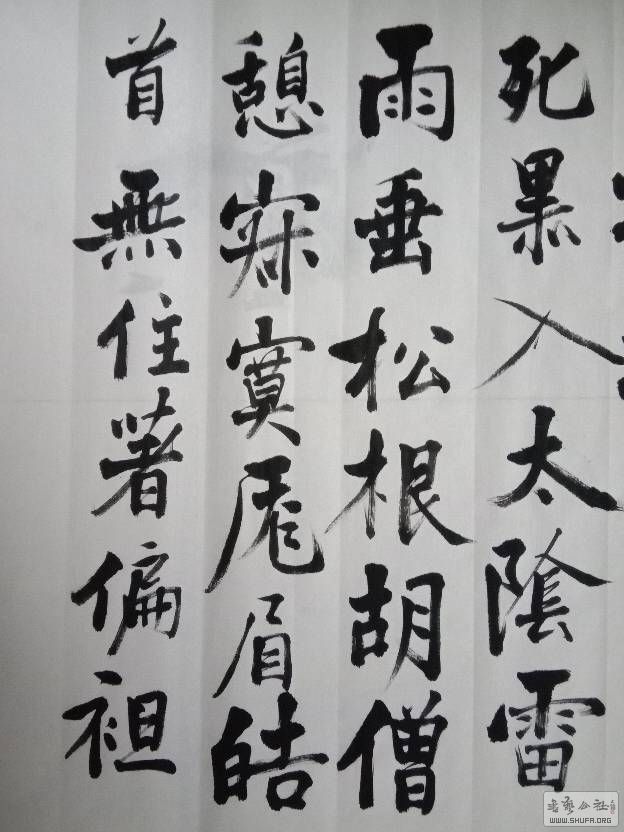 死黑入太陰雷
雨垂松根胡僧
憩寂寞厖眉皓
首無住著偏袒
书艺公社
WWW.SHUFA.ORG